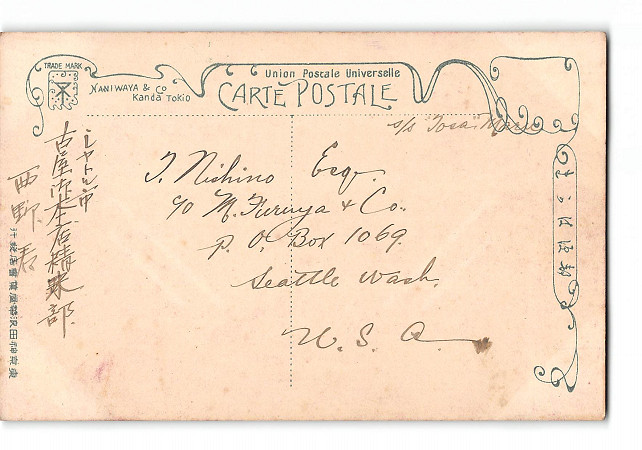 TRADE MARK
NANIWAYA & Co
Kanda Tokio
Union Postale Universelle
CARTE POSTALE
s/s Tosa Maru
T. Nishino Esq.
c/o M. Furuya & Co.
P. O. Box 1069.
Seattle Wash.
U. S. A.
シヤトル市
古屋 本店精米部
西野君
きかはび郵
東京神田 浪華屋 書店 行